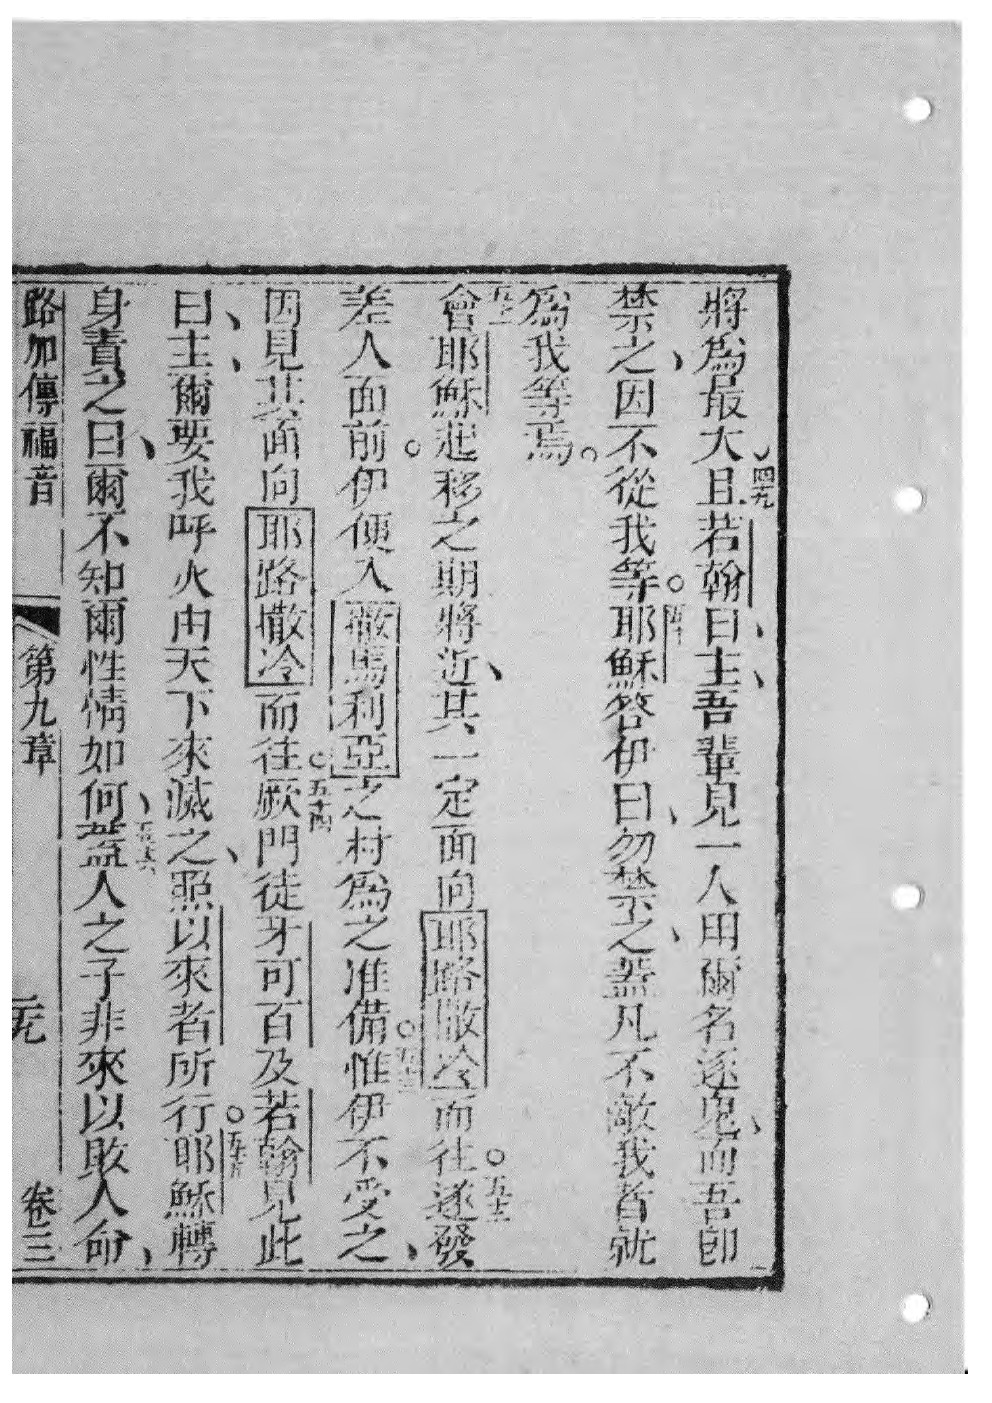 將為最大、四九且若翰曰、主、吾輩見一人用爾名逐鬼、而吾即
禁之、因不從我等。五十耶穌答伊曰、勿禁之、蓋凡不敵我者就
為我等焉。
五十一會耶穌起移之期將近、其一定面向耶路撒冷而往。五十二遂發
差人面前。伊便入撒馬利亞之村為之准備。五十三惟伊不受之、
因見其面向耶路撒冷而往。五十四厥門徒牙可百及若翰見此
曰、主、爾要我呼火由天下來滅之、照以來者所行。五十五耶穌轉
身責之曰、爾不知爾性情如何、五十六蓋人之子非來以敗人命、
路加傳福音 第九章 二九 卷三